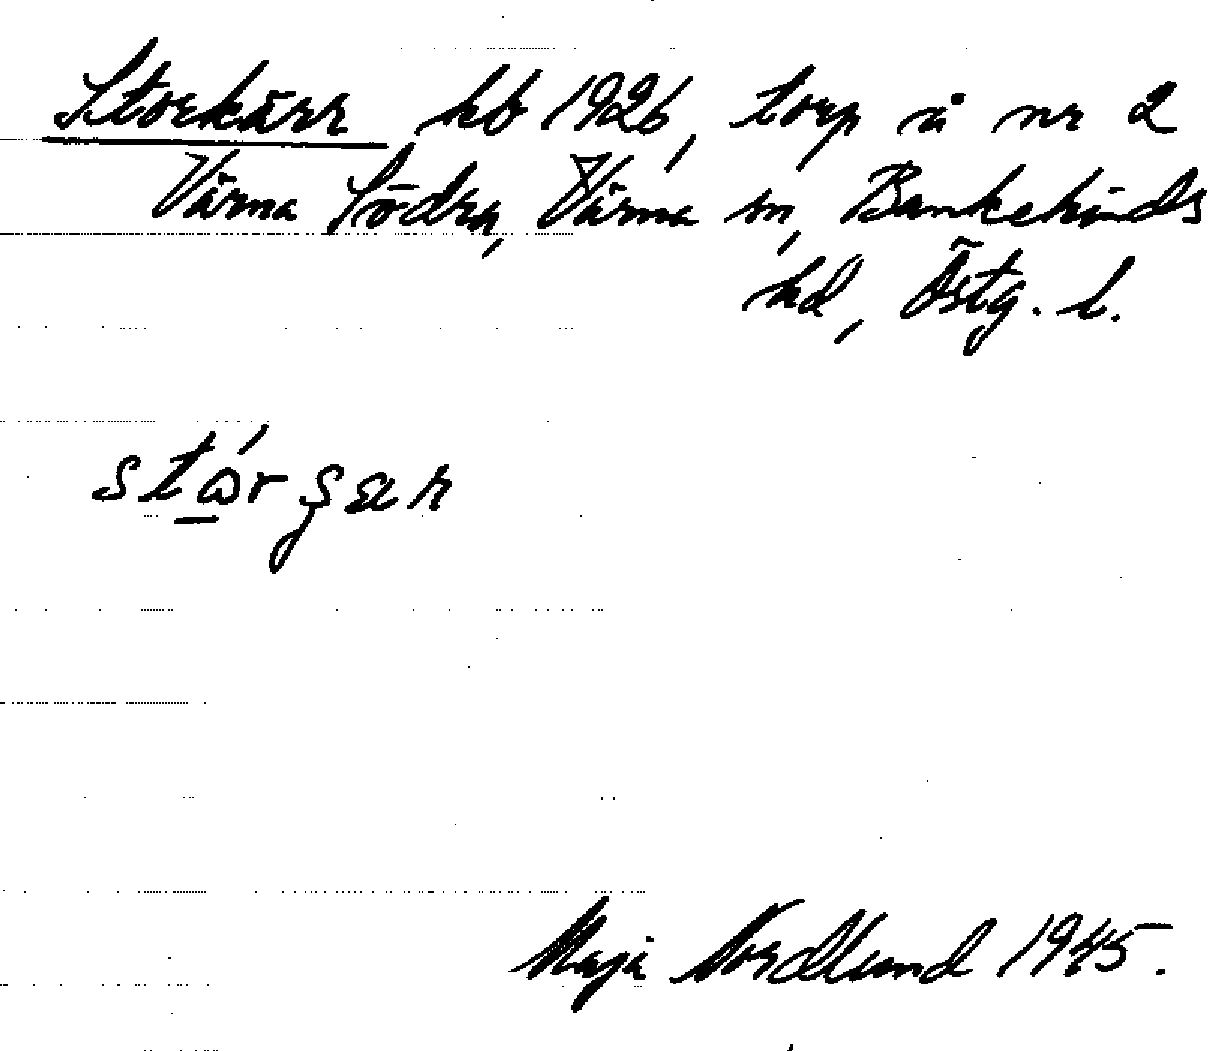 Storkärr hb 1926, torp å nr 2
Värna Södra, Värna sn, Bankekinds
hd, Östg. l.
Maja Nordlund 1945.